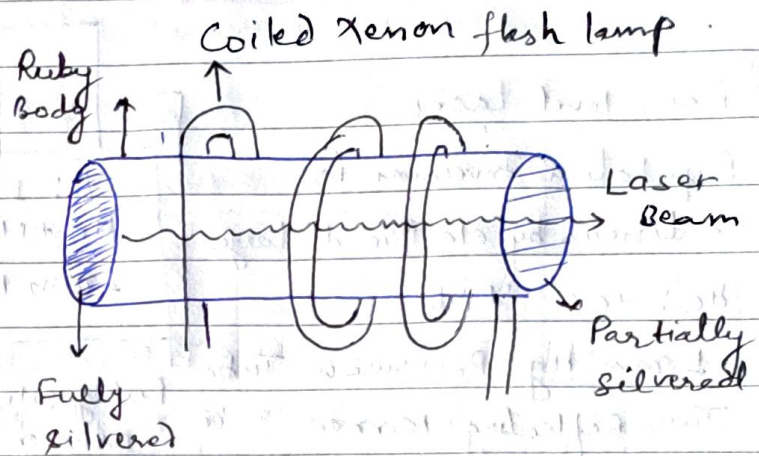 Coiled Xenon flash lamp.
Ruby
Body
Laser
Beam
Partially
silvered
Fully
silvered